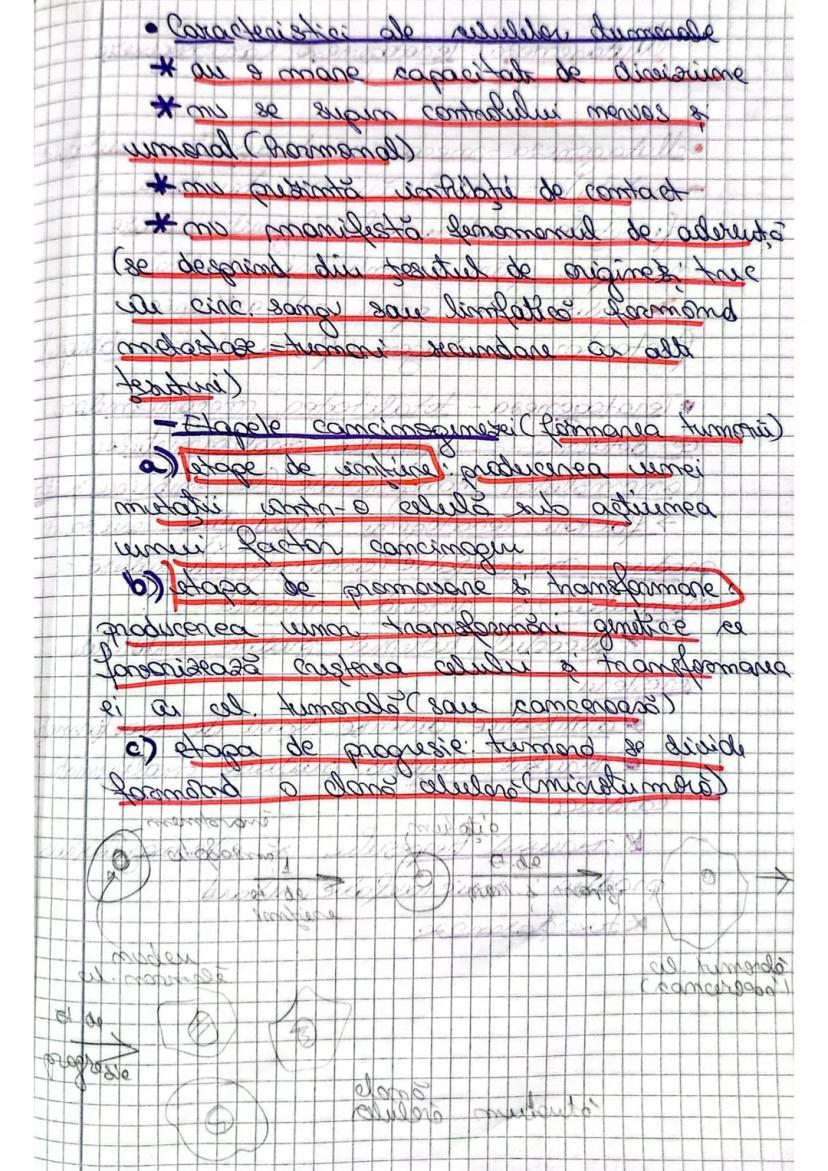 • Caracteristici ale celulelor tumorale
* au o mare capacitate de diviziune
* nu se supun controlului nervos și
umoral (hormonal)
* nu prezintă inhibiție de contact
* nu manifestă fenomenul de aderență
(se desprind din țesutul de origine și trec
în circ. sang sau limfatică formând
metastaze = tumori secundare în alte
țesuturi)
- Etapele carcinogenezei (formarea tumorii)
a) etapa de inițiere: producerea unei
mutații într-o celulă sub acțiunea
unui factor carcinogen
b) etapa de promovare și transformare:
producerea unor transformări genetice ce
favorizează creșterea celulei și transformarea
ei în cel. tumorală (sau canceroasă)
c) etapa de progresie: tumora se divide
formând o clonă celulară (microtumoră)
membrană
citoplasmă
1
et de
inițiere
mutație
et. de
prom și transf
nucleu
cel. normală
cel. tumorală
(canceroasă)
et de
progresie
clonă
celulară mutantă